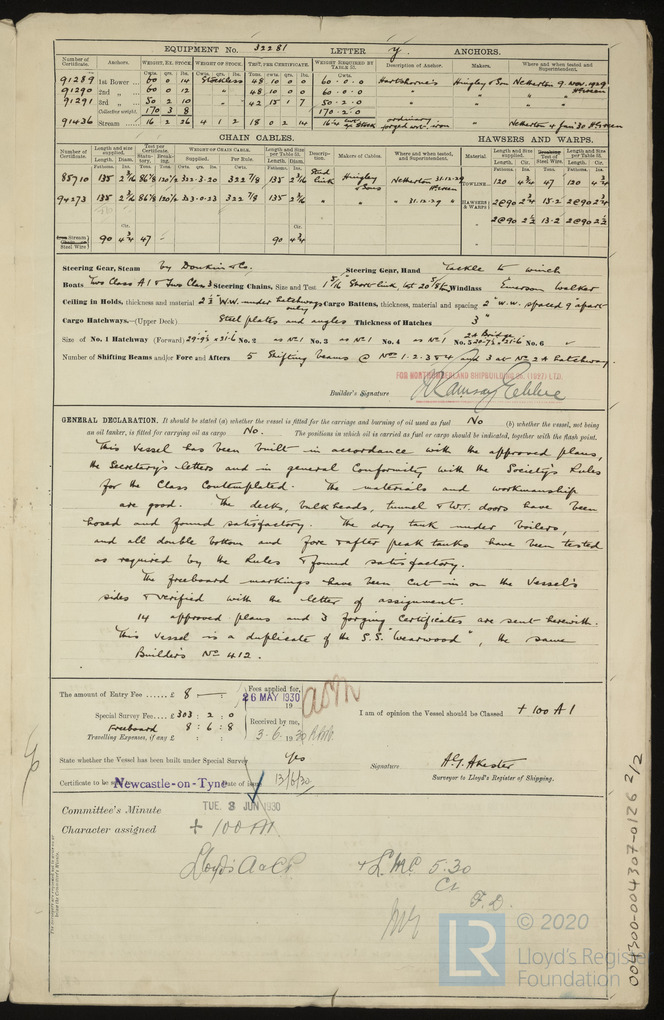 EQUIPMENT No. 32281 LETTER y. ANCHORS.
Number of Certificate. Anchors. WEIGHT, EX. STOCK WEIGHT OF STOCK. TEST, PER CERTIFICATE. WEIGHT REQUIRED BY TABLE 53. Description of Anchor. Makers. Where and when tested and Superintendent.
Cwts. qrs. lbs. Cwts. qrs. lbs. Tons. cwts. qrs. lbs. Cwts.
91289 1st Bower 60 0 14 Stockless 48 10 0 0 60 . 0 . 0 Hartshorne's Hingley & Son Netherton 9 Nov. 1929
91290 2nd „ 60 0 12 " 48 10 0 0 60 . 0 . 0 " " " H Green
91291 3rd „ 50 2 10 " 42 15 1 7 50 . 2 . 0 " " "
Collective weight. 170 3 8 170 . 2 . 0
91436 Stream 16 2 26 4 1 2 18 0 2 14 16¼ cwt ex Stock ordinary forged wrt. iron " Netherton 4 Jan 30 H Green
CHAIN CABLES. HAWSERS AND WARPS.
Number of Certificate. Length and size supplied. Test per Certificate. WEIGHT OF CHAIN CABLE. Length and size per Table 53. Description. Makers of Cables. Where and when tested, and Superintendent. Material. Length and size supplied. Test of Steel Wire. Length and Size per Table 53.
Fathoms. Diam. Statutory. Breaking. Supplied. Per Rule. Fathoms. Diam. Length. Cir. Tons. Length. Cir.
85710 135 2 3/16 86⅛ 120½ 322.3.20 322⅞ 135 2 3/16 Stud link Hingley & Sons Netherton 31.12.29 H Green TOWLINE 120 4¾ 47 120 4¾
94273 135 2 3/16 86⅛ 120½ 323.0.23 322⅞ 135 2 3/16 " " " 31.12.29 " HAWSERS & WARPS 2@90 2¾ 15.2 2@90 2¾
" 2@90 2½ 13.2 2@90 2½
Cir. Cir.
Stream Steel Wire 90 4¾ 47 90 4¾
Steering Gear, Steam by Donkin & Co. Steering Gear, Hand Tackle to winch
Boats Two Class A1 & Two Class 3 Steering Chains, Size and Test 1 5/16 Short link tst 20 5/8 tn Windlass Emerson Walker
Ceiling in Holds, thickness and material 2½" W.W. under hatchways only Cargo Battens, thickness, material and spacing 2" W.W. spaced 9" apart
Cargo Hatchways.—(Upper Deck) Steel plates and angles Thickness of Hatches 3"
Size of No. 1 Hatchway (Forward) 29'-9½ x 21'-6 No. 2 as No 1 No. 3 as No 1 No. 4 as No 1 2A Bridge No. 5 20'-7½ x 21'-6 No. 6
Number of Shifting Beams and/or Fore and Afters 5 Shifting beams @ Nos 1.2.3 & 4 and 3 at No 2A Hatchway.
FOR NORTHUMBERLAND SHIPBUILDING Co. (1927) LTD.
Builder's Signature
GENERAL DECLARATION. It should be stated (a) whether the vessel is fitted for the carriage and burning of oil used as fuel No (b) whether the vessel, not being
an oil tanker, is fitted for carrying oil as cargo No. The positions in which oil is carried as fuel or cargo should be indicated, together with the flash point.
This Vessel has been built in accordance with the approved plans,
the Secretary's letters and in general Conformity with the Society's Rules
for the Class Contemplated. The materials and workmanship
are good. The decks, bulkheads, tunnel & W.T. doors have been
hosed and found satisfactory. The dry tank under boilers,
and all double bottom and fore & after peak tanks have been tested
as required by the Rules & found satisfactory.
The freeboard markings have been cut in on the Vessel's
sides & verified with the letter of assignment.
14 approved plans and 3 forging Certificates are sent herewith.
This Vessel is a duplicate of the S.S. "Wearwood", the same
Builders No 412.
The amount of Entry Fee £ 8 : — : Fees applied for, 26 MAY 1930
Special Survey Fee £ 303 : 2 : 0 I am of opinion the Vessel should be Classed + 100 A 1
Freeboard 8 : 6 : 8 Received by me,
Travelling Expenses, if any £ : : 3.6.1930
State whether the Vessel has been built under Special Survey Yes Signature A. G. Akester
Surveyor to Lloyd's Register of Shipping.
Certificate to be sent to Newcastle-on-Tyne Date of issue 13/6/30
Committee's Minute TUE. 3 JUN 1930
Character assigned + 100 A1
Lloyd's A & CP. + L.M.C. 5.30
F.D.
© 2020
LR Lloyd's Register
Foundation
004300-004307-0126 2/2